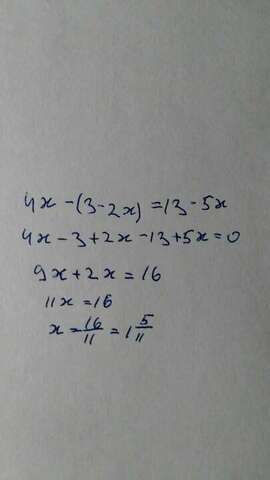 4x - (3 - 2x) = 13 - 5x
4x - 3 + 2x - 13 + 5x = 0
9x + 2x = 16
11x = 16
x = 16/11 = 1 5/11